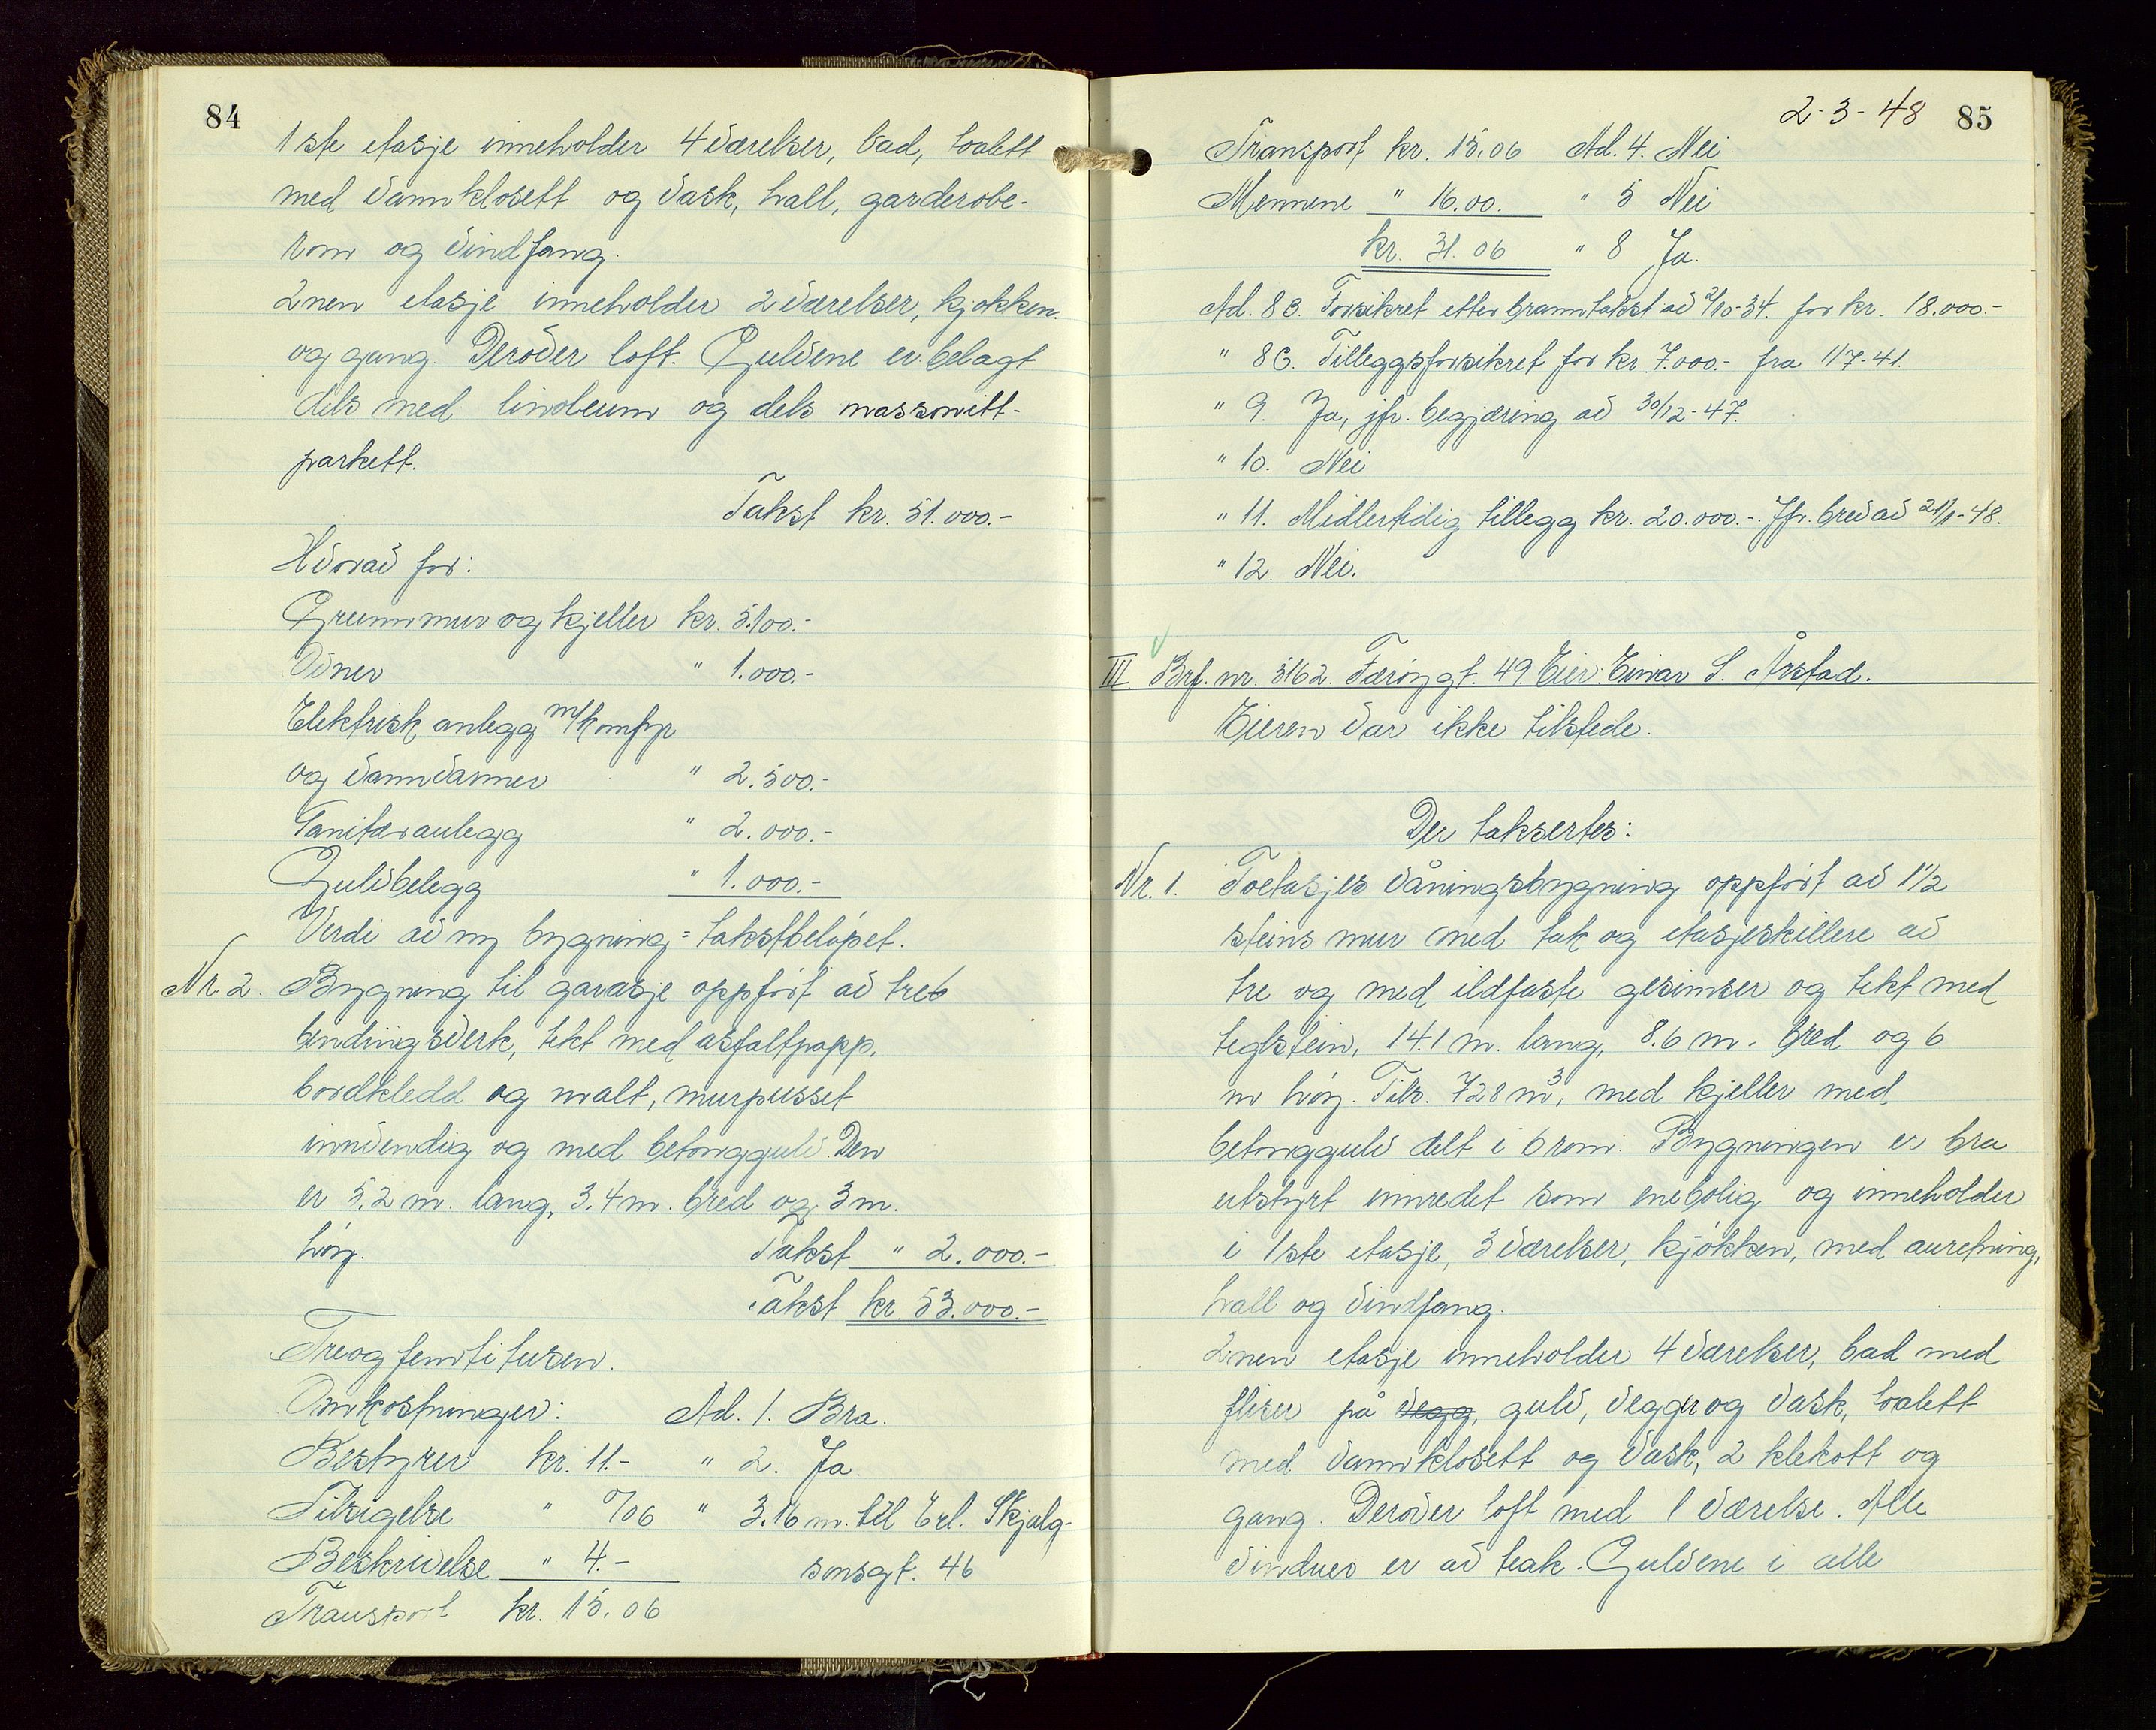 84
1ste etasje inneholder 4 værelser, bad, toalett
med vannklosett og vask, hall, garderobe-
rom og vindfang.
2nen etasje inneholder 2 værelser, kjøkken
og gang. Derover loft. Gulvene er belagt
dels med linoleum og dels massonitt-
parkett.
Takst kr. 51.000.-
Hvorav for:
Grunnmur og kjeller kr. 5.100.-
Ovner " 1.000.-
Elektrisk anlegg m/komfyr
og vannvarmer " 2.500.-
Sanitæranlegg " 2.000.-
Gulvbelegg " 1.000.-
Verdi av ny bygning = takstbeløpet.
Nr. 2. Bygning til garasje oppført av tre
bindingsverk, tekt med asfaltpapp,
bordkledd og malt, murpusset
innvendig og med betonggulv. Den
er 5.2 m. lang, 3.4 m. bred og 3 m.
høy. Takst " 2.000.-
Takst kr. 53.000.-
Treogfemtitusen.
Omkostninger: Ad. 1. Bra.
Bestyrer kr. 11.- " 2. Ja
Tilsigelse " 0/06 " 3. 16 m. til Erl. Skjalg-
Beskrivelse " 4.- sonsgt. 46
Transport kr. 15.06
2-3-48 85
Transport kr. 15.06 Ad. 4. Nei
Mennene " 16.00. " 5 Nei
kr. 31.06 " 8 Ja.
Ad. 8B. Forsikret etter branntakst av 2/10-34. for kr. 18.000.-
" 8C. Tilleggsforsikret for kr. 7.000.- fra 1/7-41.
" 9. Ja, jfr. begjæring av 30/12-47.
" 10. Nei
" 11. Midlertidig tillegg kr. 20.000.-. Jfr. brev av 21/1-48.
" 12. Nei.
III. Brf. nr. 3162. Færøygt. 49. Eier: Einar S. Årstad.
Eieren var ikke tilstede.
Der taksertes:
Nr. 1. Toetasjes våningsbygning oppført av 1 1/2
steins mur med tak og etasjeskillere av
tre og med ildfaste gesimser og tekt med
teglstein, 14.1 m. lang, 8.6 m. bred og 6
m høy. Tils. 728 m³, med kjeller med
betonggulv delt i 6 rom. Bygningen er bra
utstyrt innredet som enebolig og inneholder
i 1ste etasje, 3 værelser, kjøkken, med anretning,
hall og vindfang.
2nen etasje inneholder 4 værelser, bad med
fliser på vegg, gulv, vegger og vask, toalett
med vannklosett og vask, 2 klekott og
gang. Derover loft med 1 værelse. Alle
vinduer er av teak. Gulvene i alle